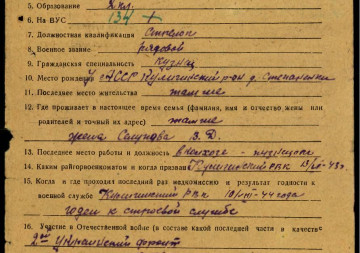 5. Образование 2 кл.
6. На ВУС 134 +
7. Должностная квалификация Стрелок
8. Военное звание рядовой
9. Гражданская специальность Кузнец
10. Место рождения УАССР р-он д. Степановка
11. Последнее место жительства там же
12. Где проживает в настоящее время семья (фамилия, имя и отчество жены или
родителей и точный их адрес) там же
жена В. Д.
13. Последнее место работы и должность в колхозе - кузнецом
14. Каким райгорвоенкоматом и когда призван РВК 43 г.
15. Когда и где проходил последний раз медкомиссию и результат годности к
военной службе РВК 44 года
годен к строевой службе
16. Участие в Отечественной войне (в составе какой последней части и в качестве
2ой Украинский фронт